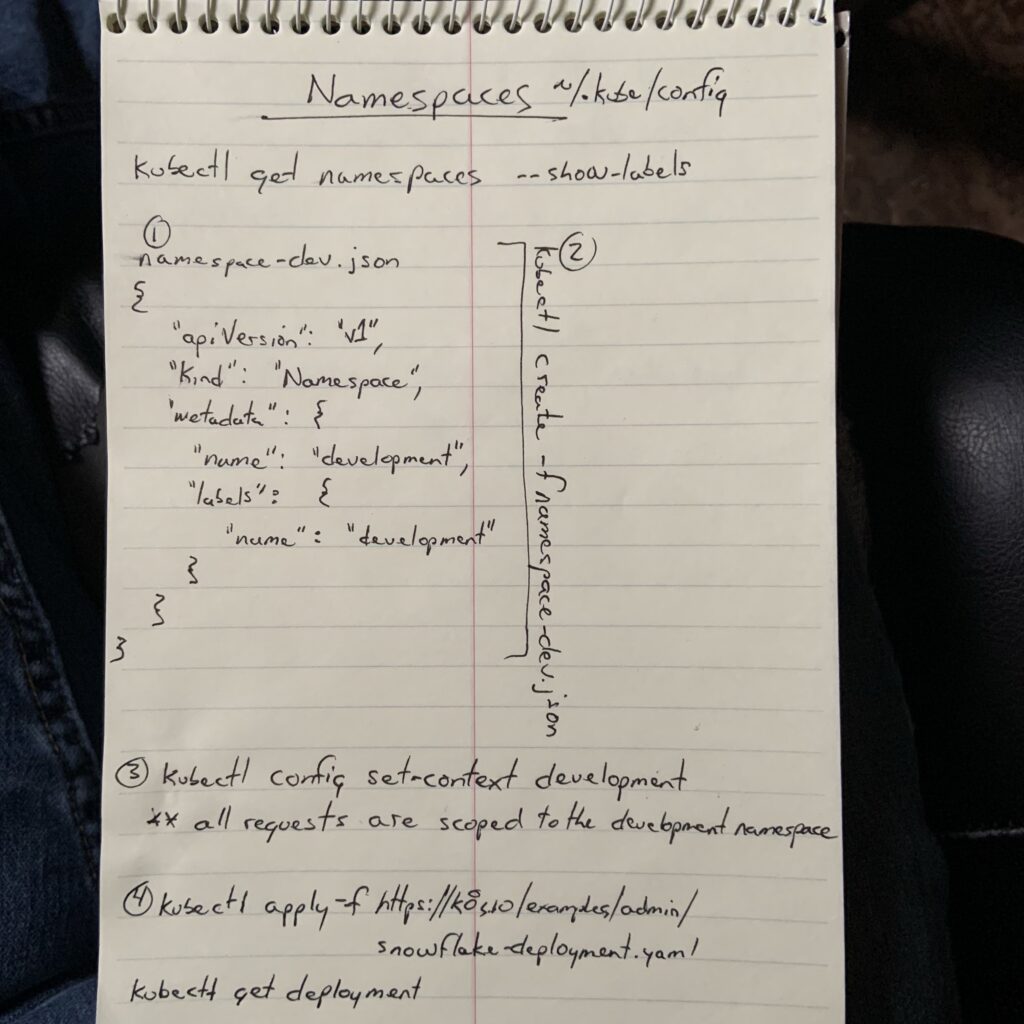 Namespaces ~/.kube/config
kubectl get namespaces --show-labels
①
namespace-dev.json
{
"apiVersion": "v1",
"kind": "Namespace",
"metadata": {
"name": "development",
"labels": {
"name": "development"
}
}
}
②
kubectl create -f namespace-dev.json
③ kubectl config set-context development
** all requests are scoped to the development namespace
④ kubectl apply -f https://k8s.io/examples/admin/
snowflake-deployment.yaml
kubectl get deployment